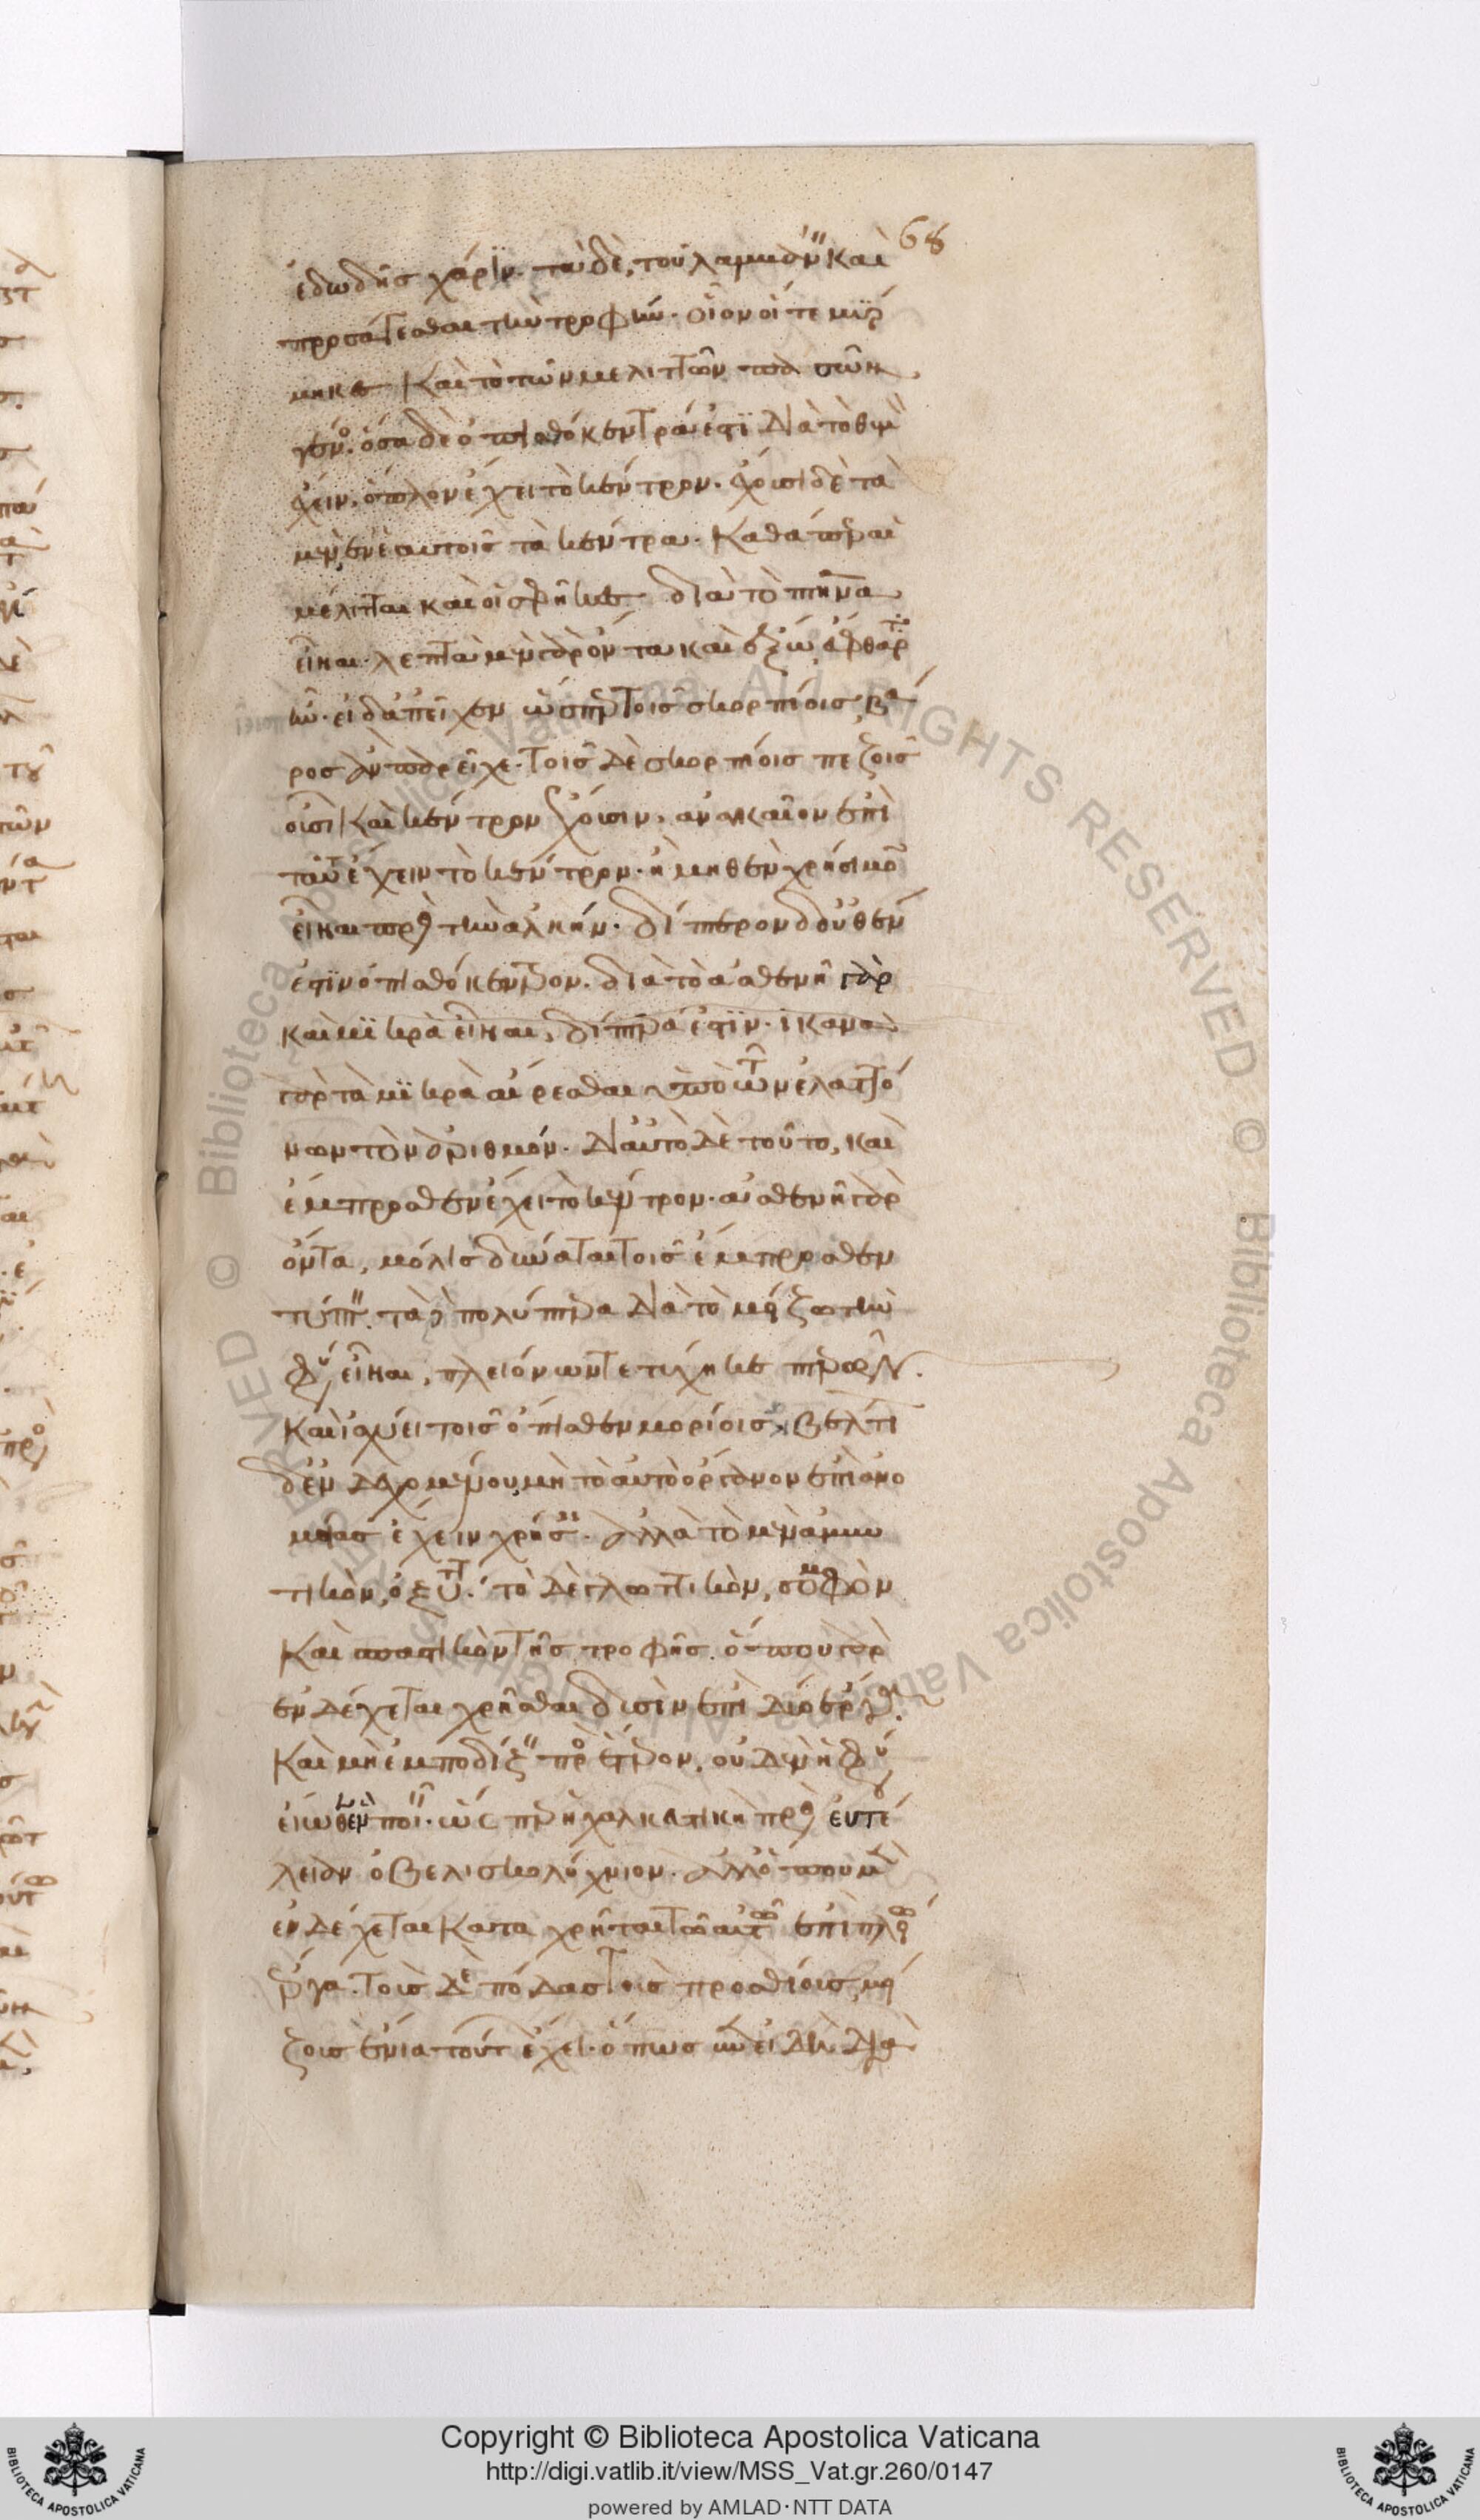 68
ἐδωδῆς χάριν. τὰ δὲ, τοῦ λαμβάνειν καὶ
προσάγεσθαι τὴν τροφήν. οἷον οἵ τε μύρ
μηκες καὶ τὸ τῶν μελιττῶν πασῶν
γένος. ὅσα δὲ ὀπισθόκεντρά ἐστι διὰ τὸ θυμὸν
ἔχειν, ὅπλον ἔχει τὸ κέντρον. ἔχουσι δὲ τὰ
μὲν ἐν ἑαυτοῖς τὰ κέντρα. καθάπερ αἱ
μέλιτται καὶ οἱ σφῆκες διὰ τὸ πτηνὰ
εἶναι. λεπτὰ μὲν γὰρ ὄντα καὶ ἔξω εὔφθαρτα
ἦν. εἰ δ' ἀπεῖχεν ὥσπερ τοῖς σκορπίοις, βά
ρος ἂν παρεῖχε. τοῖς δὲ σκορπίοις πεζοῖς
οὖσι καὶ κέντρον ἔχουσιν, ἀναγκαῖον ἐπὶ
ταύτῃ ἔχειν τὸ κέντρον. ἢ μηθὲν χρήσιμον
εἶναι πρὸς τὴν ἀλκήν. δίπτερον δ' οὐθέν
ἐστιν ὀπισθόκεντρον. διὰ τὸ ἀσθενῆ γὰρ
καὶ μικρὰ εἶναι, δίπτερά ἐστιν. ἱκανὰ
γὰρ τὰ μικρὰ αἴρεσθαι ὑπὸ τῶν ἐλαττό
νων τὸν ἀριθμόν. διὰ ταὐτὸ δὲ τοῦτο, καὶ
ἔμπροσθεν ἔχει τὸ κέντρον. ἀσθενῆ γὰρ
ὄντα, μόλις δύναται τοῖς ἔμπροσθεν
τύπτειν. τὰ δὲ πολύπτερα διὰ τὸ μείζω τὴν
φύσιν εἶναι, πλειόνων τετύχηκε πτερῶν.
καὶ ἰσχύει τοῖς ὄπισθεν μορίοις, βέλτι
ον δ' ἐνδεχομένου μὴ τὸ αὐτὸ ὄργανον ἐπὶ ἀνο
μοίας ἔχειν χρήσεις. ἀλλὰ τὸ μὲν ἀμυν
τικὸν, ὀξύτατον. τὸ δὲ γλωττικὸν, σομφὸν
καὶ σπαστικὸν τῆς τροφῆς. ὅπου γὰρ
ἐνδέχεται χρῆσθαι δυσὶν ἐπὶ δύο ἔργα
καὶ μὴ ἐμποδίζειν πρὸς ἕτερον, οὐδὲν ἡ φύσις
εἴωθεν ποιεῖν. ὥσπερ ἡ χαλκευτικὴ πρὸς εὐτέ
λειαν ὀβελισκολύχνιον. ἀλλ' ὅπου μὴ
ἐνδέχεται καταχρῆται τῷ αὐτῷ ἐπὶ πλείω
ἔργα. τοὺς δὲ πόδας τοὺς προσθίους μεί
ζους ἔνια τούτων ἔχει. ὅπως ἐπειδὴ διὰ